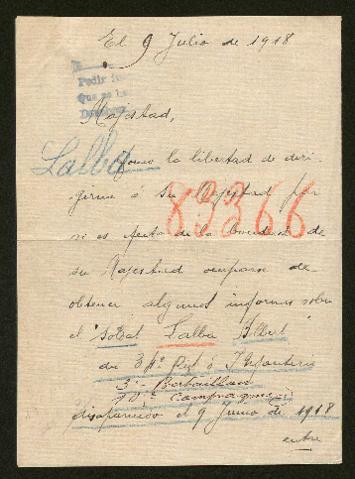 El 9 Julio de 1918
Pedir
Que se ha
Majestad,
Lalba
Tomo la libertad de diri-
girme á Su Majestad por
si es efecto de la bondad de
su Majestad ocuparse de
obtener algunos informes sobre
el soldat Lalba Albert
du 34º Rgt d'Infanterie
3º Bataillon
10º Compagnie
disaparecido el 9 Junio de 1918
entre
83366